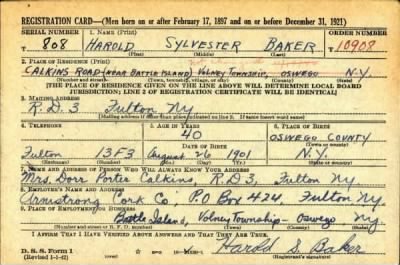 REGISTRATION CARD—(Men born on or after February 17, 1897 and on or before December 31, 1921)
SERIAL NUMBER 1. NAME (Print) ORDER NUMBER
808 HAROLD SYLVESTER BAKER 10908
(First) (Middle) (Last)
2. PLACE OF RESIDENCE (Print)
CALKINS ROAD (NEAR BATTLE ISLAND) VOLNEY TOWNSHIP, OSWEGO N.Y.
(Number and street) (Town, township, village, or city) (County) (State)
[THE PLACE OF RESIDENCE GIVEN ON THE LINE ABOVE WILL DETERMINE LOCAL BOARD
JURISDICTION; LINE 2 OF REGISTRATION CERTIFICATE WILL BE IDENTICAL]
3. MAILING ADDRESS
R.D. 3 Fulton Ny
[Mailing address if other than place indicated on line 2. If same insert word same]
4. TELEPHONE 5. AGE IN YEARS 6. PLACE OF BIRTH
40 OSWEGO COUNTY
DATE OF BIRTH (Town or county)
Fulton 13F3 August 26 1901 N.Y
(Exchange) (Number) (Mo.) (Day) (Yr.) (State or country)
7. NAME AND ADDRESS OF PERSON WHO WILL ALWAYS KNOW YOUR ADDRESS
Mrs. Dorr Porter Calkins, R.D.3, Fulton Ny
8. EMPLOYER'S NAME AND ADDRESS
Armstrong Cork Co; P.O Box 424, Fulton Ny.
9. PLACE OF EMPLOYMENT OR BUSINESS
Battle Island, Volney Township - Oswego Ny
(Number and street or R. F. D. number) (Town) (County) (State)
I AFFIRM THAT I HAVE VERIFIED ABOVE ANSWERS AND THAT THEY ARE TRUE.
D. S. S. Form 1
(Revised 1-1-42) Harold S. Baker